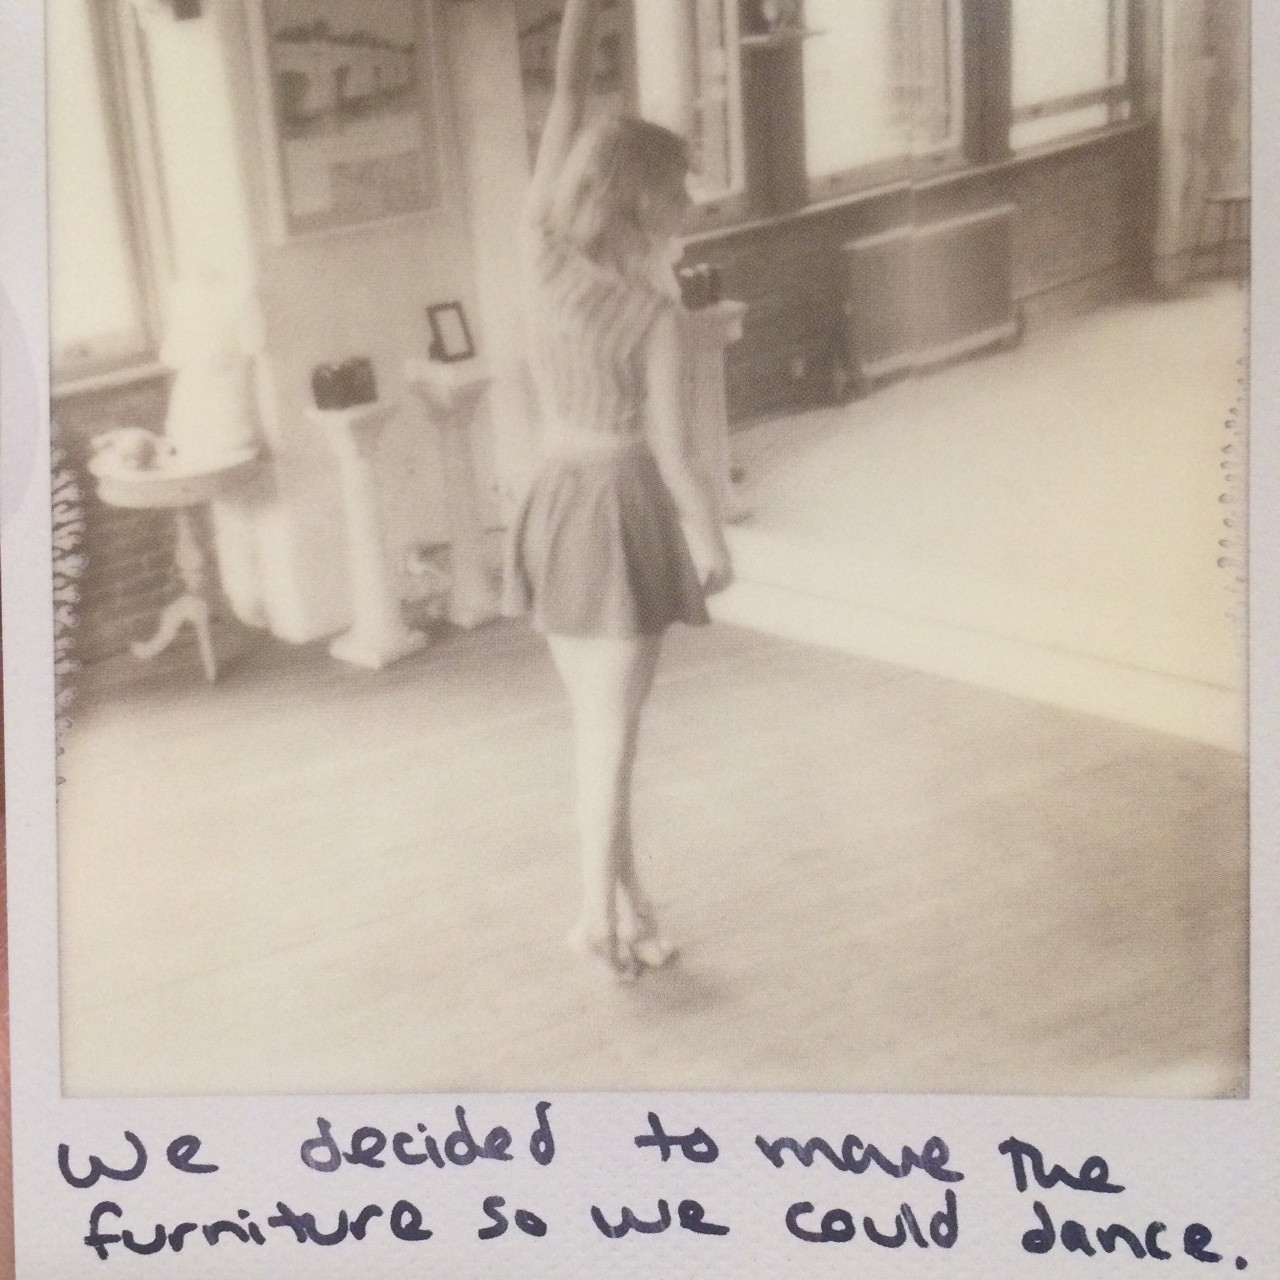 We decided to move The
furniture so we could dance.